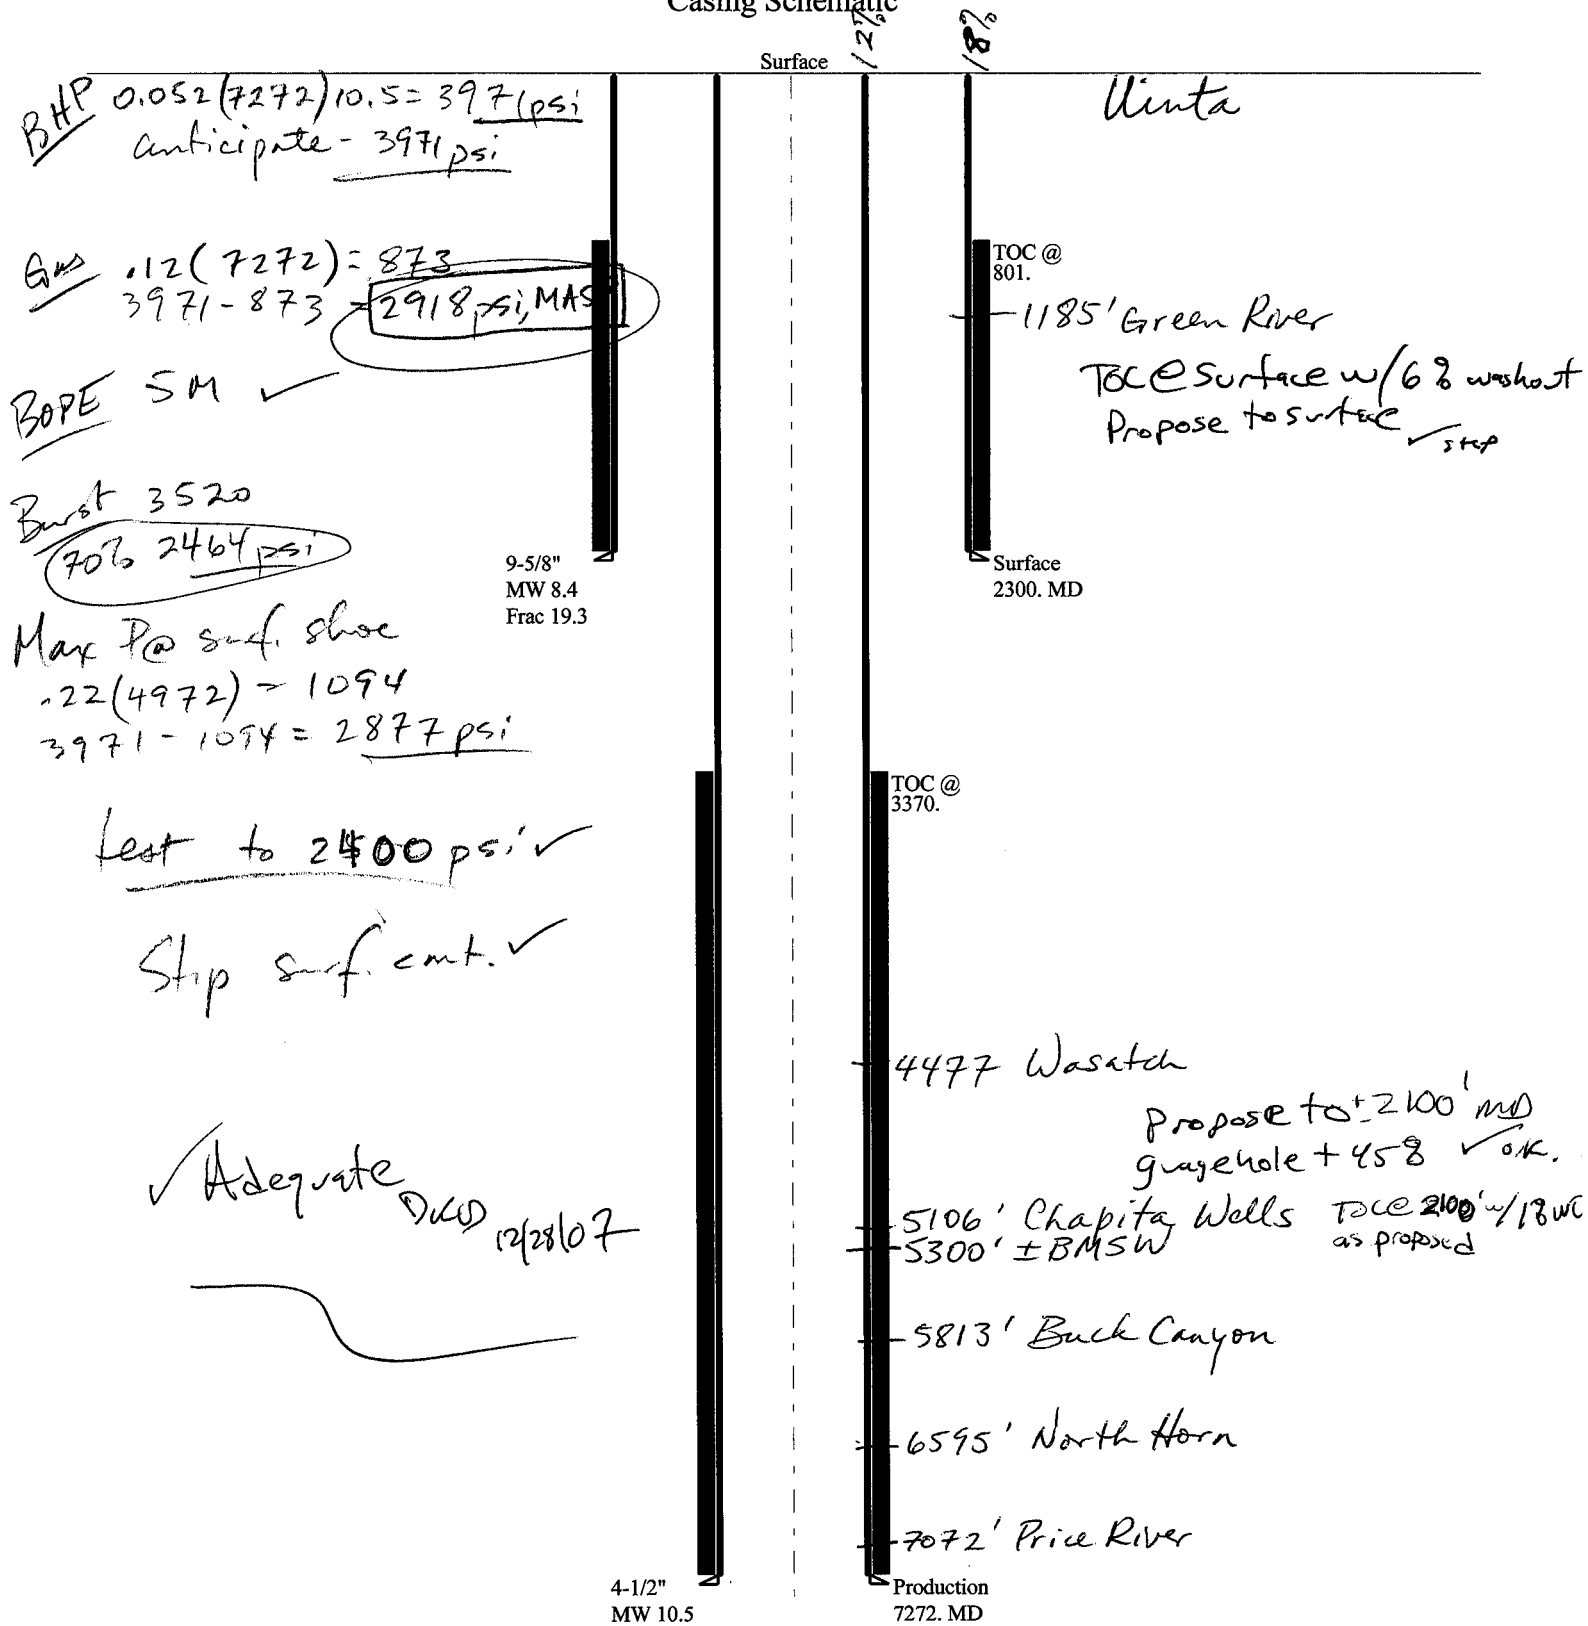 Casing Schematic
Surface
12%
18%
Uinta
BHP 0.052(7272)10.5= 3971psi
anticipate - 3971 psi
Gas .12(7272)= 873
3971-873 = 2918psi, MAS
BOPE 5M ✓
Burst 3520
70% 2464 psi
Max P@ surf. shoe
.22(4972) = 1094
3971 - 1094 = 2877 psi
test to 2400 psi ✓
Stip surf. cmt. ✓
✓ Adequate
DKD 12/28/07
9-5/8"
MW 8.4
Frac 19.3
TOC @
801.
1185' Green River
TOC @ Surface w/6% washout
Propose to surface ✓ stip
Surface
2300. MD
TOC @
3370.
4477 Wasatch
Propose to ± 2100' MD
guagehole + 45% ✓ O.K.
5106' Chapita Wells
TOC @ 2100' w/1%
as proposed
5300' ± BMSW
5813' Buck Canyon
6595' North Horn
7072' Price River
4-1/2"
MW 10.5
Production
7272. MD